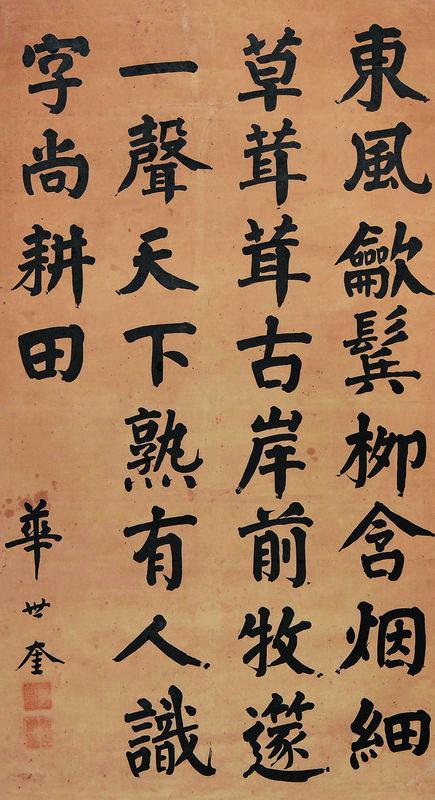 東風龡鬂栁含烟細
草茸茸古岸前牧篴
一聲天下熟有人識
字尚耕田
華世奎